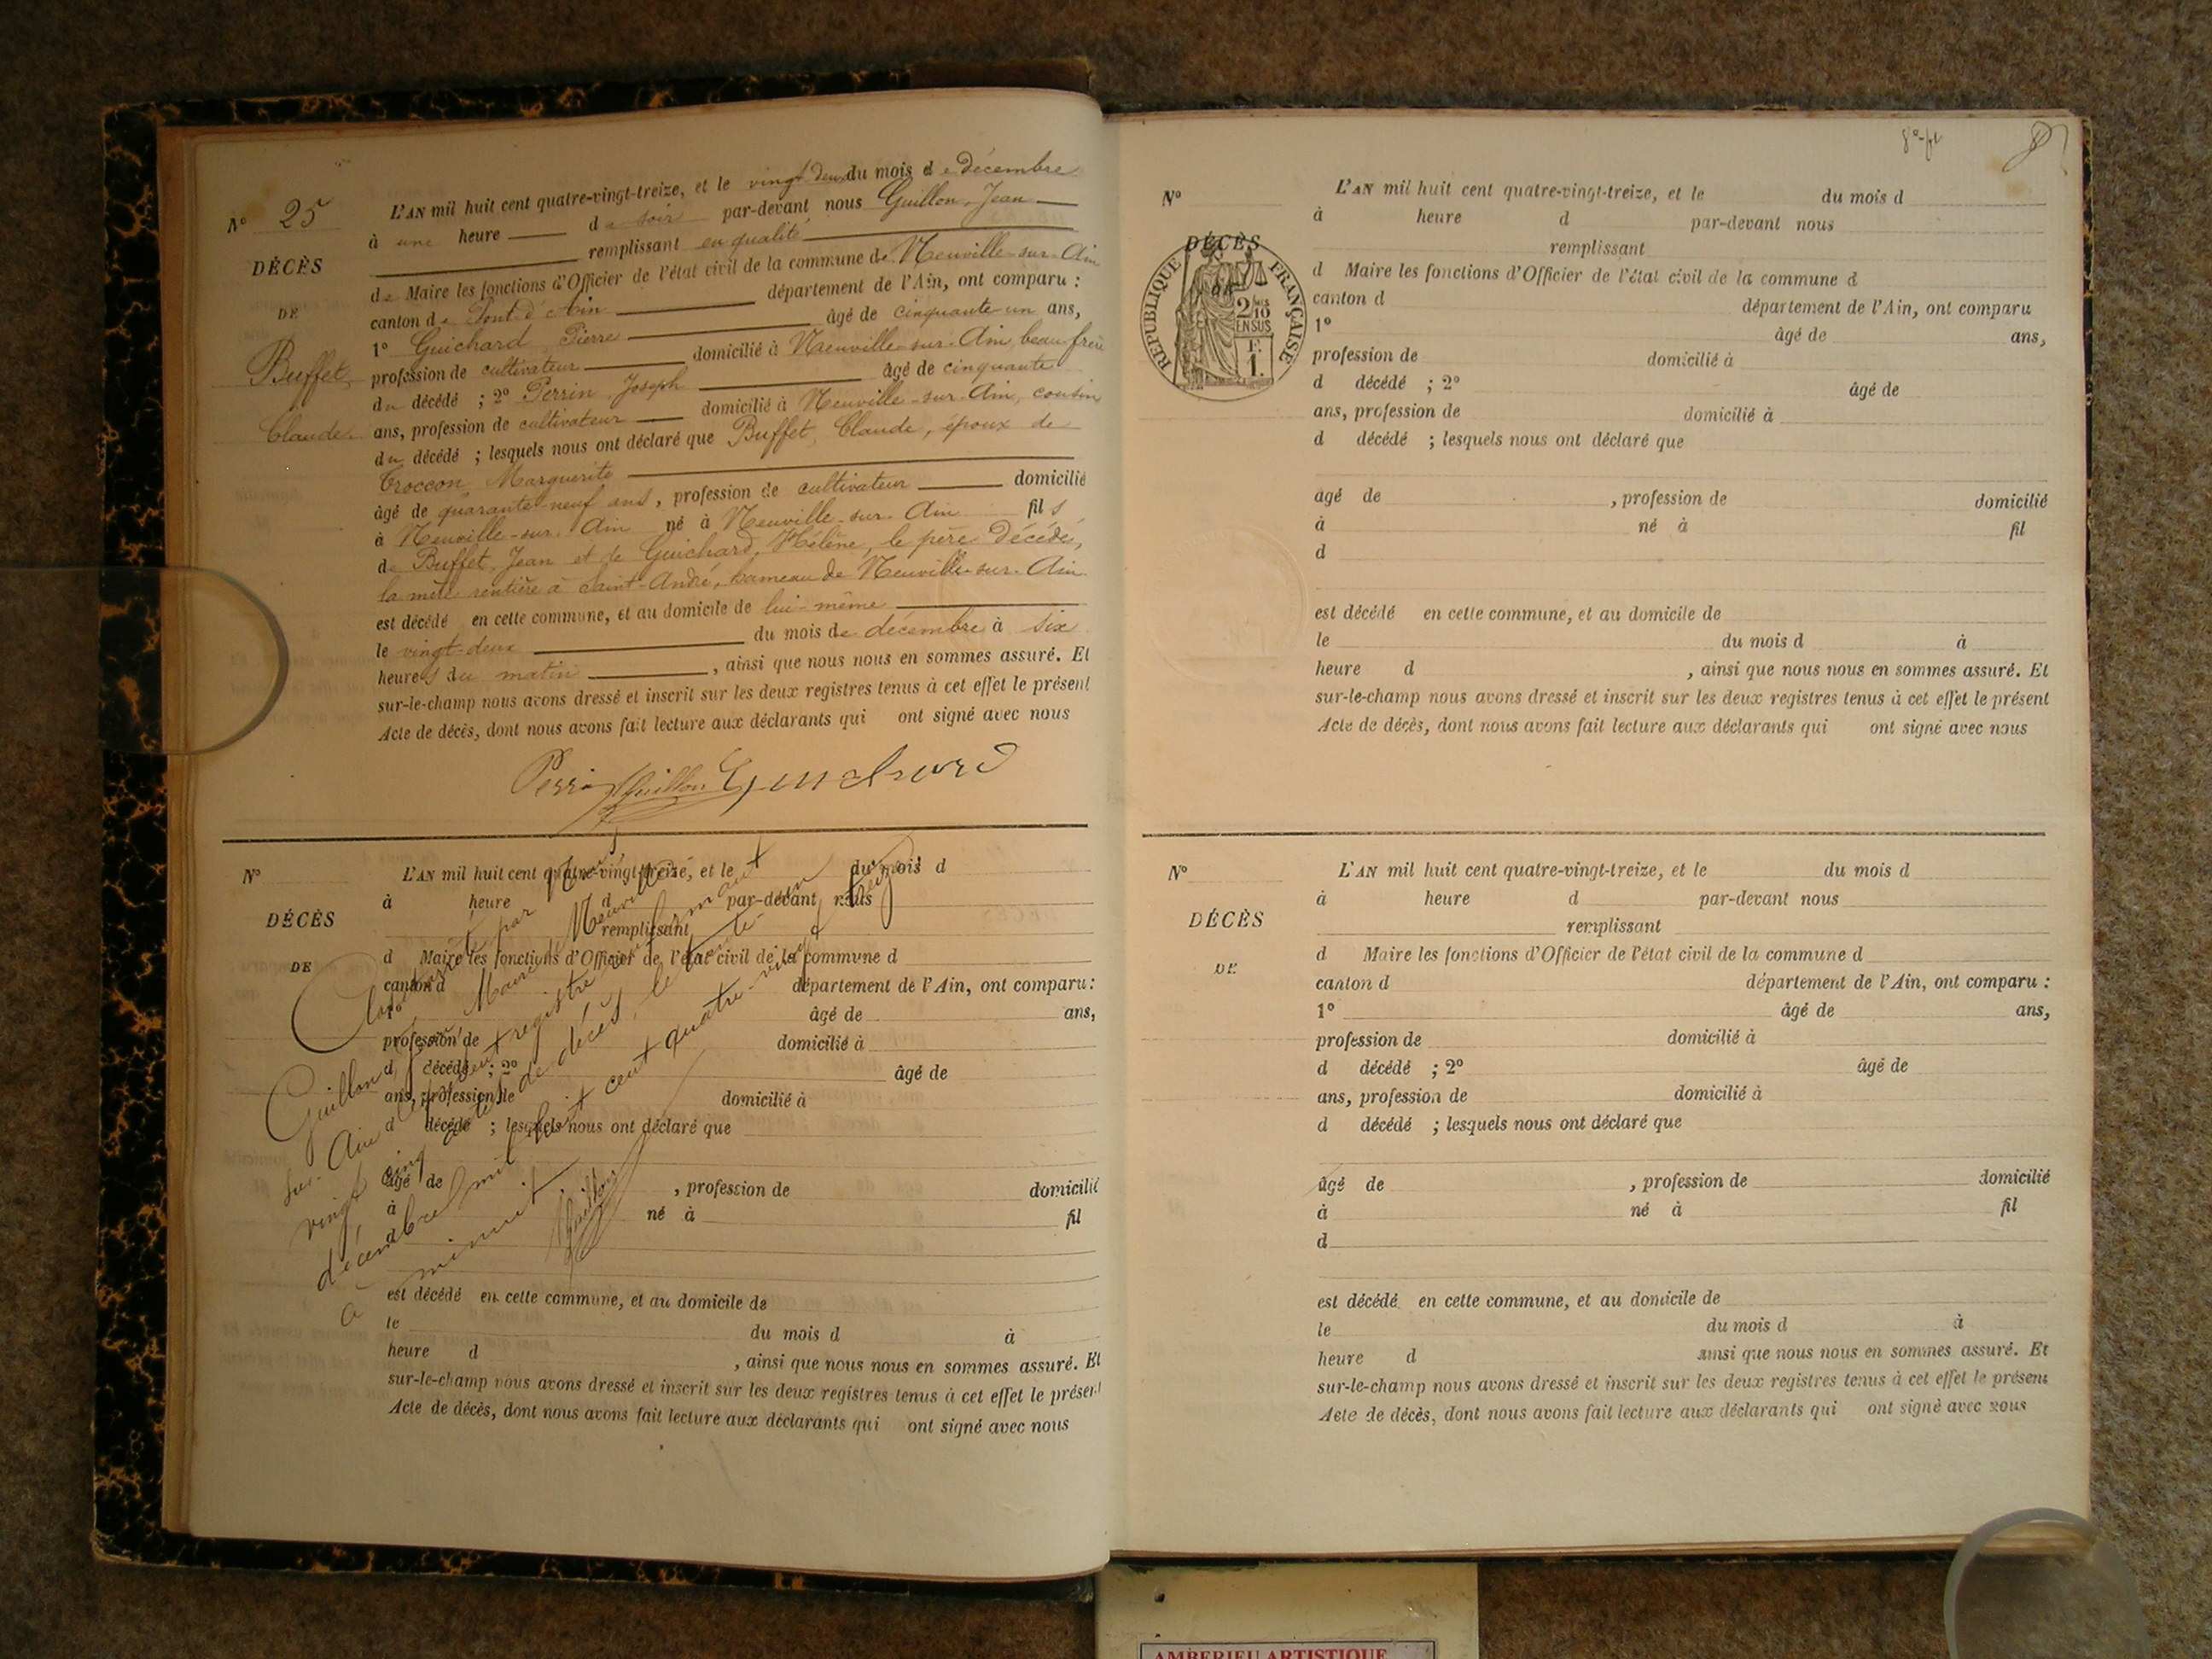 N° 25
DÉCÈS
DE
Buffet
Claude
L'AN mil huit cent quatre-vingt-treize, et le vingt deux du mois de décembre
à une heure du soir par-devant nous Guillon, Jean
remplissant en qualité
de Maire les fonctions d'Officier de l'état civil de la commune de Neuville-sur-Ain
canton de Pont-d'Ain département de l'Ain, ont comparu :
1° Guichard Pierre âgé de cinquante un ans,
profession de cultivateur domicilié à Neuville-sur-Ain, beau-frère
du décédé ; 2° Perrin Joseph âgé de cinquante
ans, profession de cultivateur domicilié à Neuville-sur-Ain, cousin
du décédé ; lesquels nous ont déclaré que Buffet, Claude, époux de
Troccon, Marguerite
âgé de quarante-neuf ans, profession de cultivateur domicilié
à Neuville-sur-Ain né à Neuville-sur-Ain fils
de Buffet, Jean et de Guichard, Hélène, le père décédé,
la mère rentière à Saint-André, hameau de Neuville-sur-Ain
est décédé en cette commune, et au domicile de lui-même
le vingt-deux du mois de décembre à six
heures du matin, ainsi que nous nous en sommes assuré. Et
sur-le-champ nous avons dressé et inscrit sur les deux registres tenus à cet effet le présent
Acte de décès, dont nous avons fait lecture aux déclarants qui ont signé avec nous
Perrin Guillon Guichard
N°
DÉCÈS
DE
L'AN mil huit cent quatre-vingt-treize, et le du mois d
à heure d par-devant nous
remplissant
d Maire les fonctions d'Officier de l'état civil de la commune d
canton d département de l'Ain, ont comparu :
1° âgé de ans,
profession de domicilié à
d décédé ; 2° âgé de
ans, profession de domicilié à
d décédé ; lesquels nous ont déclaré que
âgé de , profession de domicilié
à né à fil
d
est décédé en cette commune, et au domicile de
le du mois d à
heure d , ainsi que nous nous en sommes assuré. Et
sur-le-champ nous avons dressé et inscrit sur les deux registres tenus à cet effet le présent
Acte de décès, dont nous avons fait lecture aux déclarants qui ont signé avec nous
Clos et arrêté par Nous
Guillon, Maire de Neuville
sur-Ain le présent registre renfermant
vingt cinq actes de décès, le trente un
décembre mil huit cent quatre-vingt treize
à minuit
Guillon
N°
DÉCÈS
RÉPUBLIQUE FRANÇAISE
2/10 EN SUS
F. 1.
L'AN mil huit cent quatre-vingt-treize, et le du mois d
à heure d par-devant nous
remplissant
d Maire les fonctions d'Officier de l'état civil de la commune d
canton d département de l'Ain, ont comparu
1° âgé de ans,
profession de domicilié à
d décédé ; 2° âgé de
ans, profession de domicilié à
d décédé ; lesquels nous ont déclaré que
âgé de , profession de domicilié
à né à fil
d
est décédé en cette commune, et au domicile de
le du mois d à
heure d , ainsi que nous nous en sommes assuré. Et
sur-le-champ nous avons dressé et inscrit sur les deux registres tenus à cet effet le présent
Acte de décès, dont nous avons fait lecture aux déclarants qui ont signé avec nous
N°
DÉCÈS
DE
L'AN mil huit cent quatre-vingt-treize, et le du mois d
à heure d par-devant nous
remplissant
d Maire les fonctions d'Officier de l'état civil de la commune d
canton d département de l'Ain, ont comparu :
1° âgé de ans,
profession de domicilié à
d décédé ; 2° âgé de
ans, profession de domicilié à
d décédé ; lesquels nous ont déclaré que
âgé de , profession de domicilié
à né à fil
d
est décédé en cette commune, et au domicile de
le du mois d à
heure d ainsi que nous nous en sommes assuré. Et
sur-le-champ nous avons dressé et inscrit sur les deux registres tenus à cet effet le présent
Acte de décès, dont nous avons fait lecture aux déclarants qui ont signé avec nous
AMBERIEU ARTISTIQUE